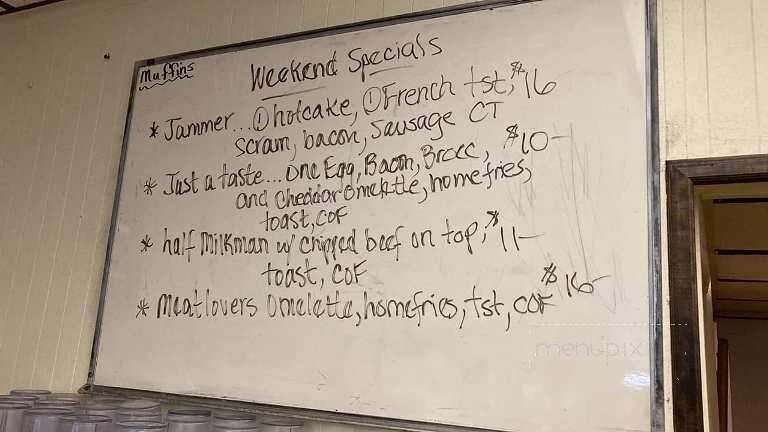 Muffins
Weekend Specials
* Jammer... ① hotcake, ① French tst, $16
scram, bacon, Sausage CT
* Just a taste... One Egg, Bacon, Brocc, $10-
and Cheddar Omelette, homefries,
toast, COF
* half Milkman w/ chipped beef on top, $11-
toast, COF
* Meatlovers Omelette, homefries, tst, COF $16-
menupix